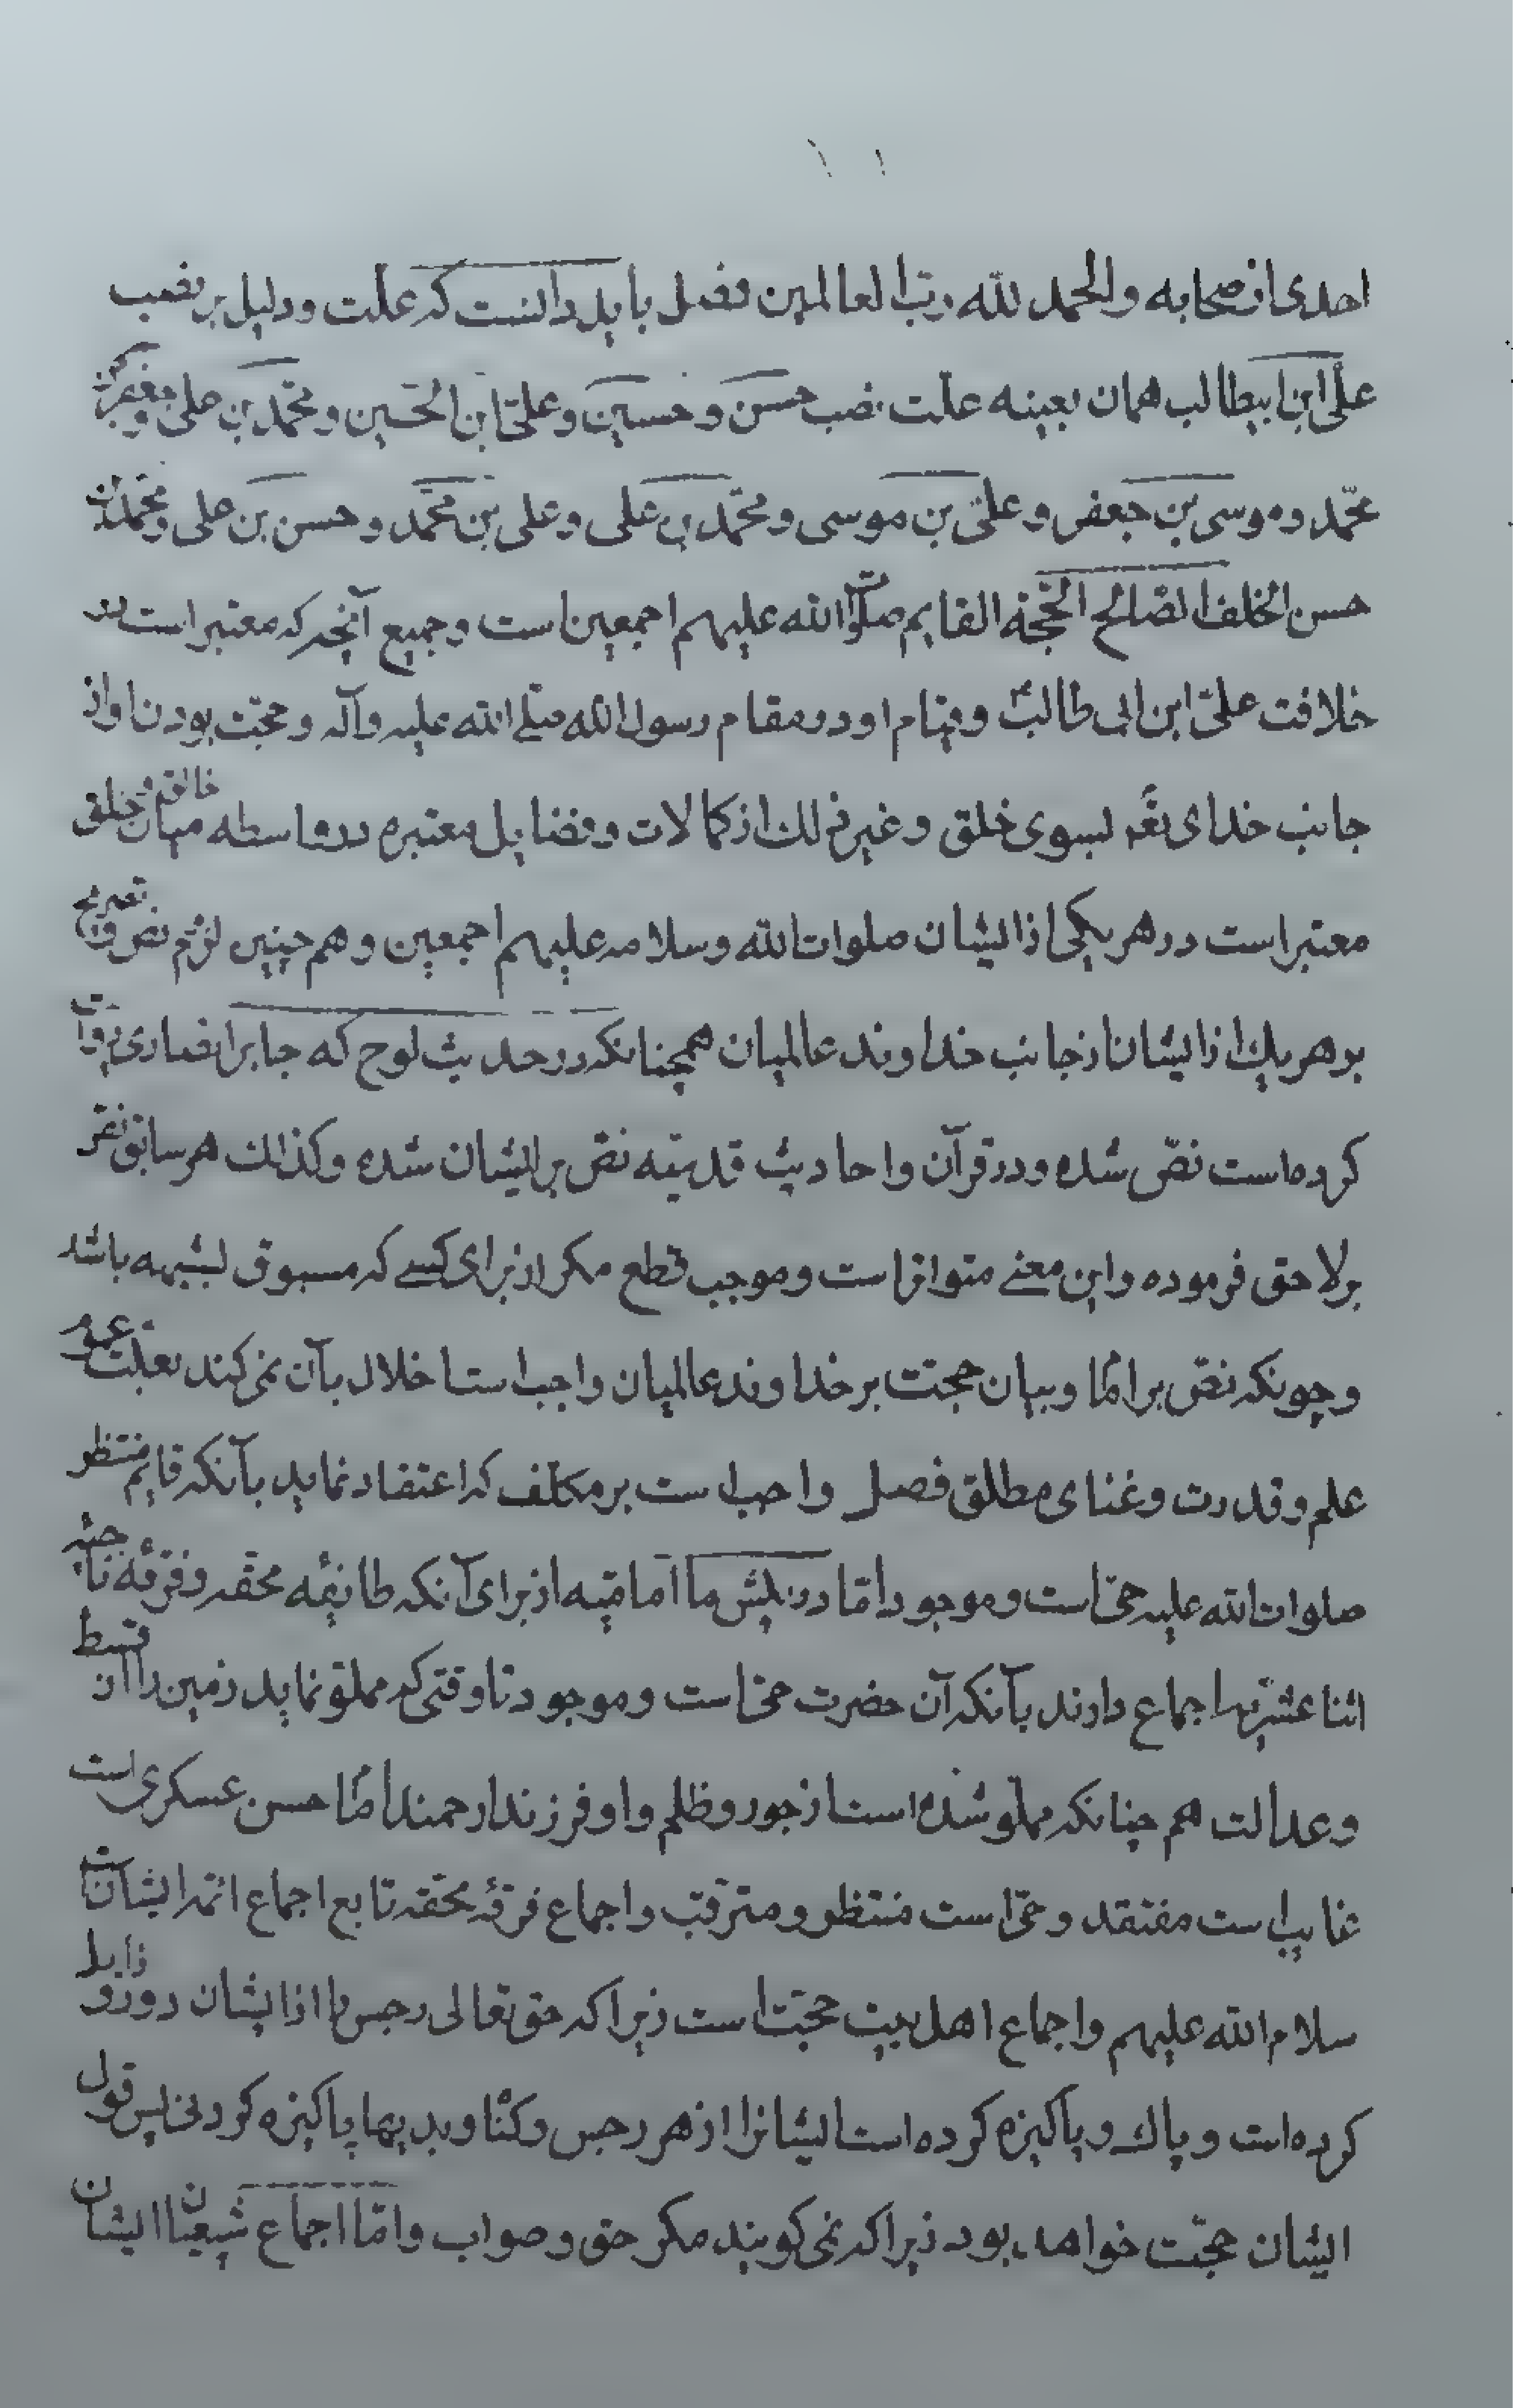 احدی از صحابه والحمد لله رب العالمین فصل باید دانست که علت و دلیل بر نصب
علی ابن ابیطالب همان بعینه علت نصب حسن و حسین و علی ابن الحسین و محمد بن علی و جعفر بن
محمد و موسی بن جعفر و علی بن موسی و محمد بن علی و علی بن محمد و حسن بن علی و محمد بن
حسن الخلف الصالح الحجة القایم صلوات الله علیهم اجمعین است و جمیع آنچه که معتبر است در
خلافت علی ابن ابی طالب و قیام او در مقام رسول الله صلی الله علیه وآله و حجت بودن او از
جانب خدای تعم بسوی خلق و غیر ذلک از کمالات و فضایل معتبره در واسطه میان خالق و خلق
معتبر است در هر یکی از ایشان صلوات الله وسلامه علیهم اجمعین و هم چنین لزوم نص و تصریح
بر هر یک از ایشان از جانب خداوند عالمیان همچنانکه در حدیث لوح که جابر انصاری روایت
کرده است نص شده و در قرآن و احادیث قدسیه نص بر ایشان شده وکذالک هر سابق نص
بر لاحق فرموده و این معنے متواتر است و موجب قطع مکر از برای کسے که مسبوق بشبهه باشد
و چونکه نص بر امام و بیان حجت بر خداوند عالمیان واجب است اخلال بآن نمی کند بعلت عموم
علم و قدرت و غنای مطلق فصل واجب است بر مکلف که اعتقاد نماید بآنکه قایم منتظر
صلوات الله علیه حی است و موجود اما در پیش ما امامیه از برای آنکه طایفه محقه و فرقه ناجیه
اثنا عشریه اجماع دارند بآنکه آن حضرت حی است و موجود تا وقتی که مملو نماید زمین را از قسط
و عدالت هم چنانکه مملو شده است از جور و ظلم و او فرزند ارجمند امام حسن عسکری است
غایب است مفتقد و حی است منتظر و مترقب و اجماع فرقه محقه تابع اجماع ائمه ایشان است
سلام الله علیهم و اجماع اهل بیت حجت است زیرا که حق تعالی رجس را از ایشان دور و زایل
کرده است و پاک و پاکیزه کرده است ایشانرا از هر رجس و کناه وبدیها پاکیزه کردنی پس قول
ایشان حجت خواهد بود زیرا که نمی کویند مکر حق و صواب و اما اجماع شیعیان ایشان